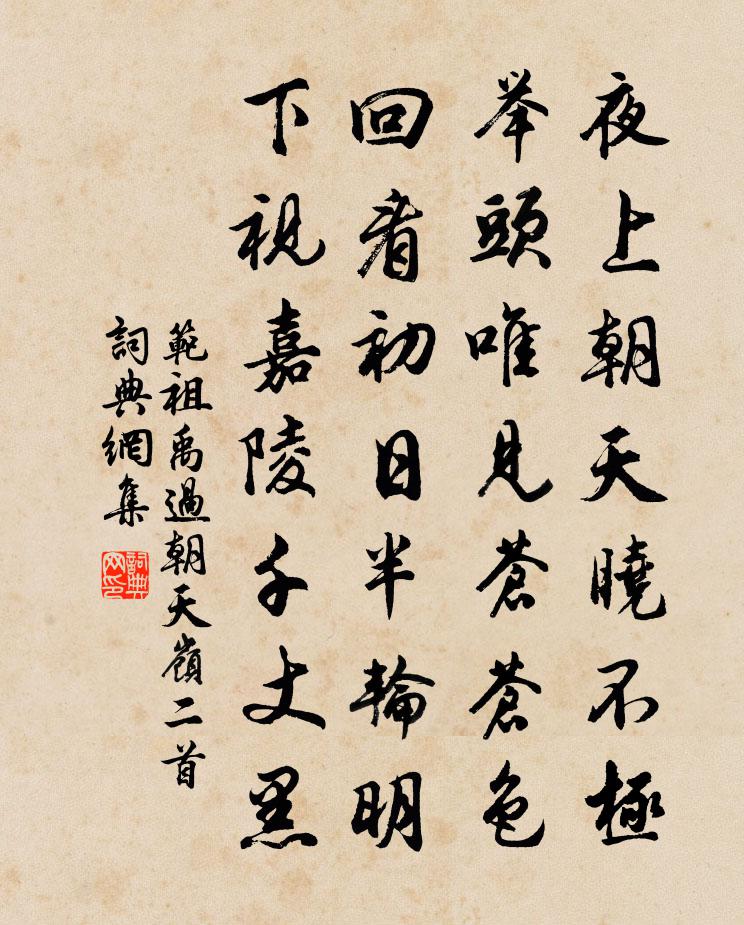 夜上朝天曉不極
举頭唯見蒼蒼色
回看初日半輪明
下視嘉陵千丈黑
範祖禹過朝天嶺二首
詞典網集
詞典网印